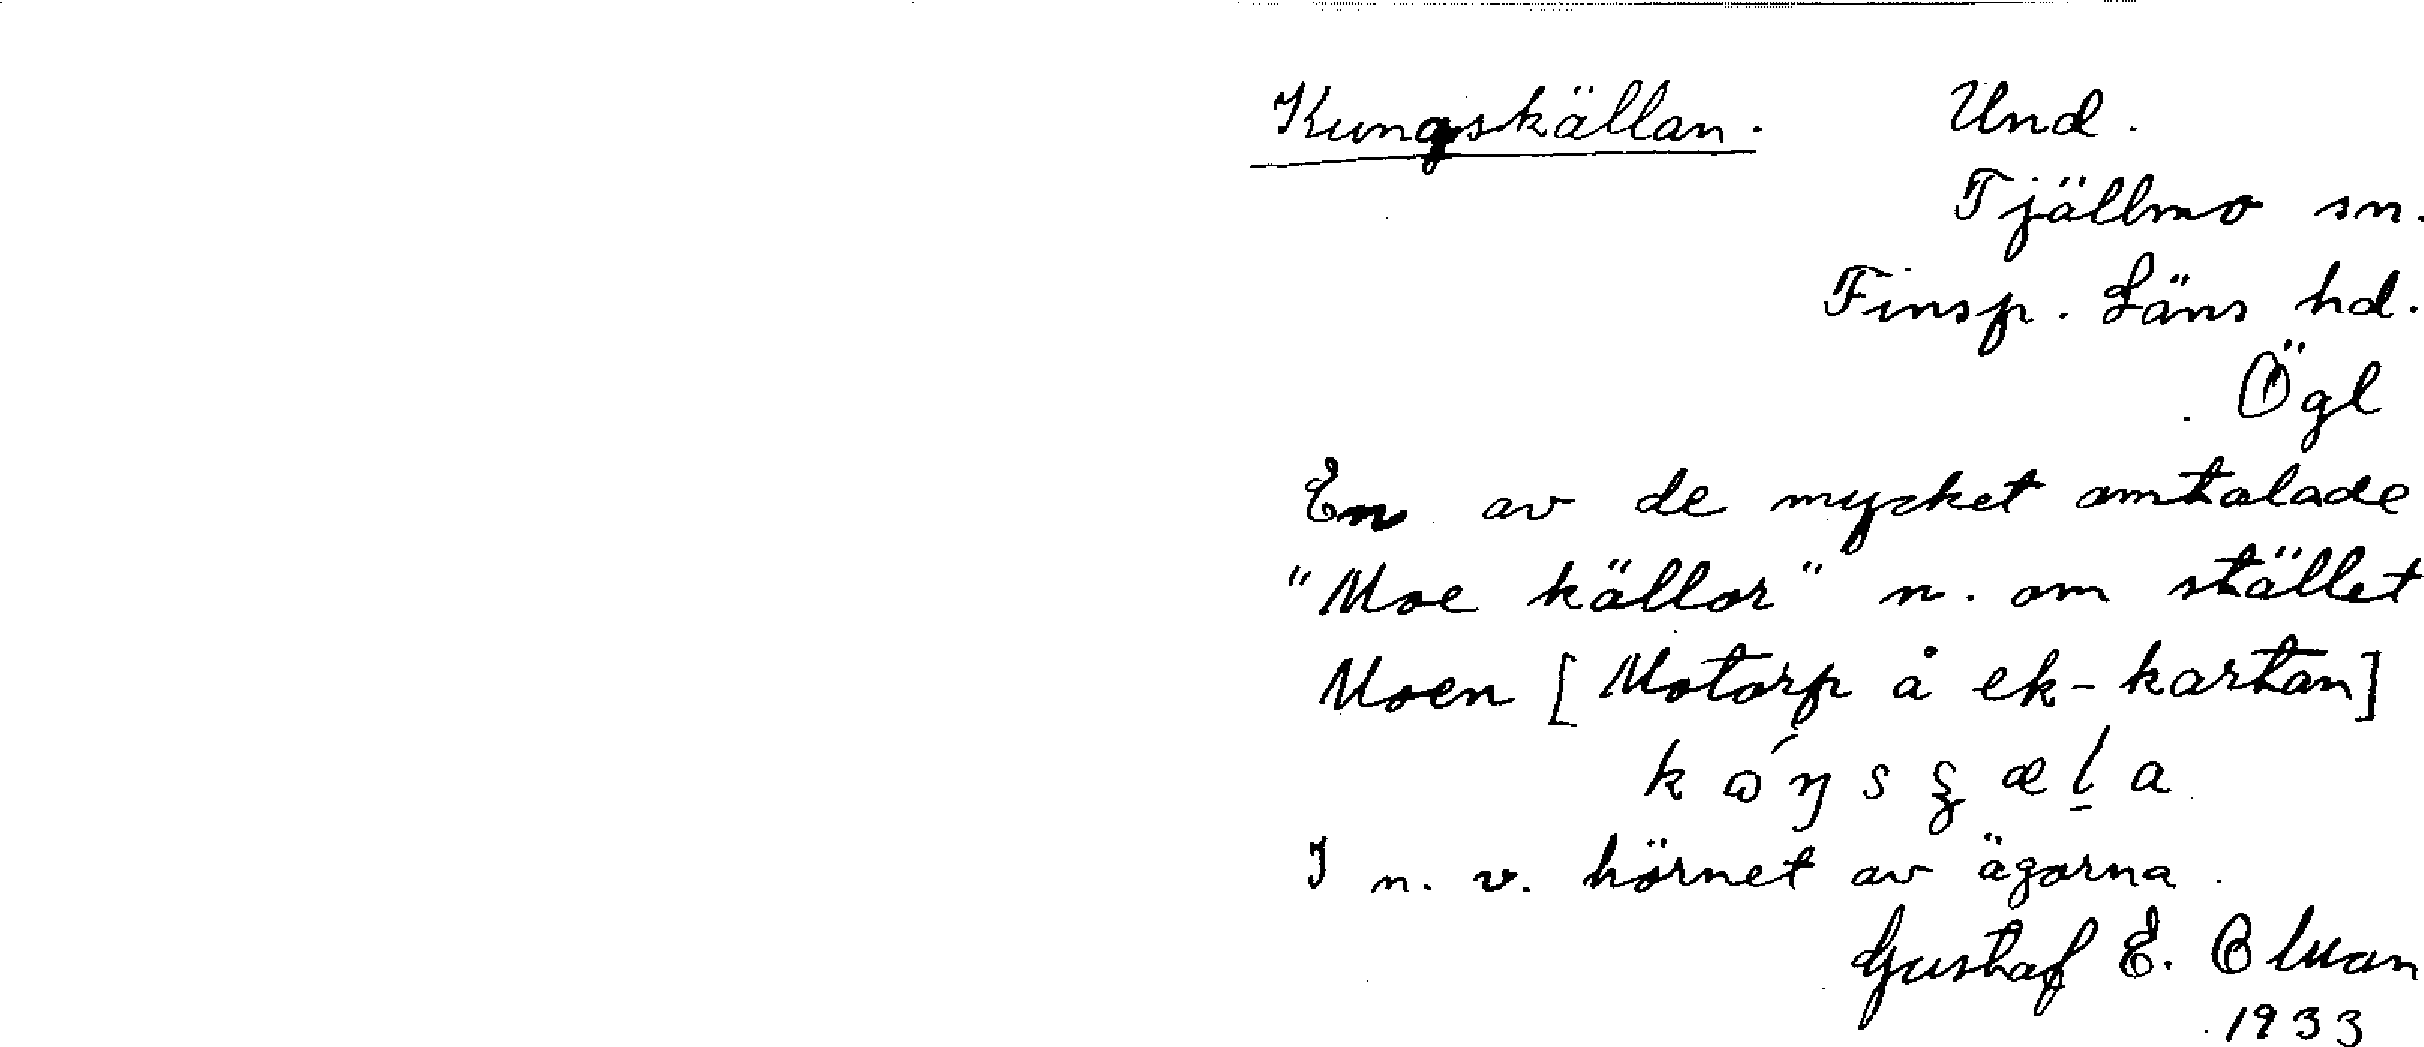 Kungskällan. Und.
Tjällmo sn.
Finsp. Läns hd.
Ögl
En av de mycket omtalade
"Moe källor" n. om stället
Moen [Motorp å ek-kartan]
I n. v. hörnet av ägorna.
Gustaf E.
1933